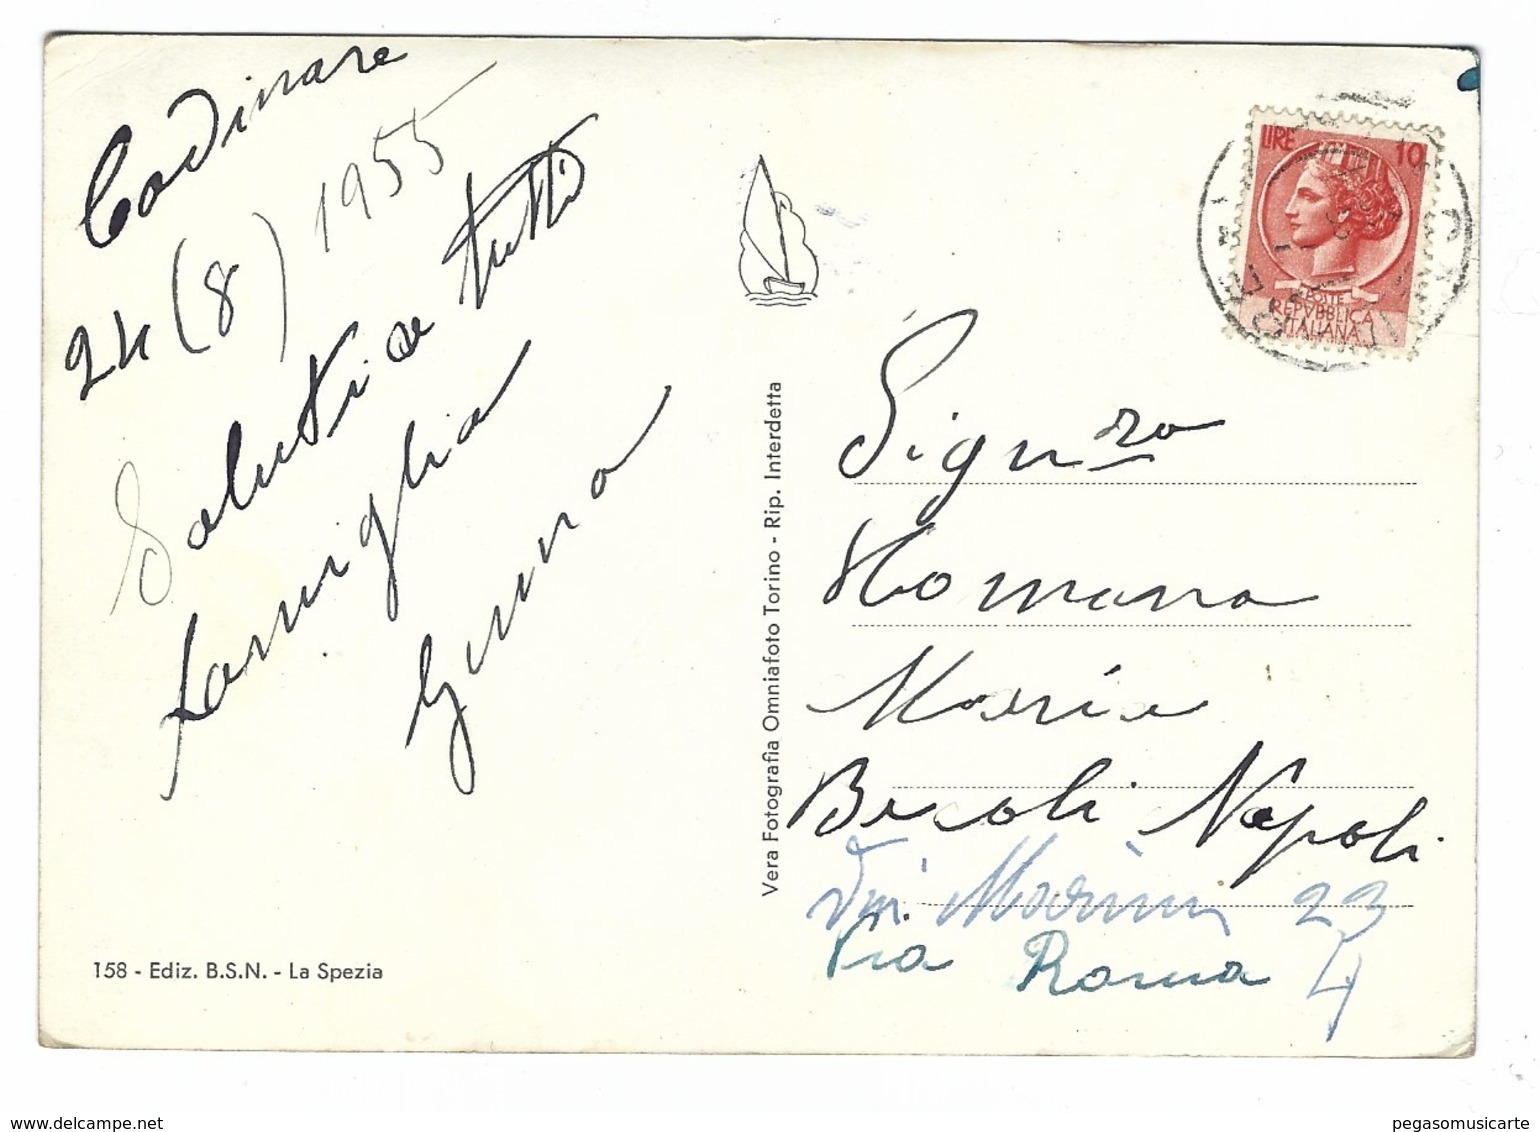 Codinare
24 (8) 1955
Saluti a tutti
famiglia
Gunna
158 - Ediz. B.S.N. - La Spezia
Vera Fotografia Omniafoto Torino - Rip. Interdetta
LIRE 10
POSTE
REPVBBLICA
ITALIANA
Signra
Romana
Maria
Bacoli Napoli
23
Via Roma 4
delcampe.net
pegasomusicarte